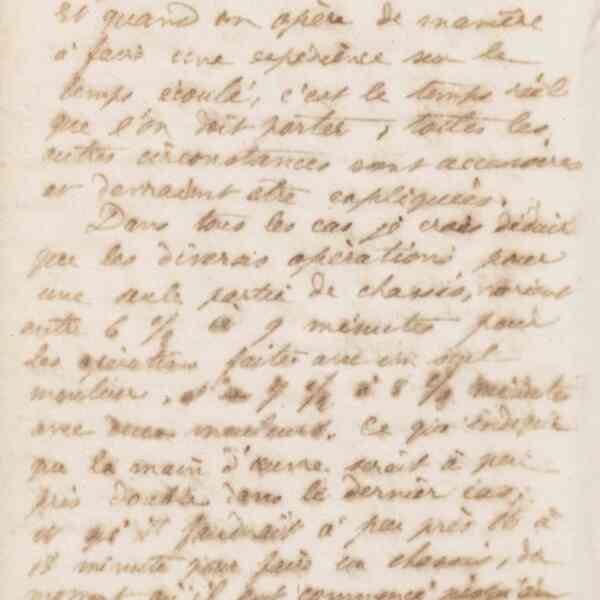 Et quand on opère de manière
à faire une expérience sur le
temps écoulé, c'est le temps réel
que l'on doit porter, toutes les
autres circonstances sont accessoires
et devraient être expliquées.
Dans tous les cas je crois déduire
que les diverses opérations pour
une seule partie de chassis, varient
entre 6 à 9 minutes pour
les opérations faites avec un seul
mouleur, 7 à 8 minutes
avec deux mouleurs. Ce qui indique
que la main d'œuvre serait à peu
près double dans le dernier cas,
et qu'il faudrait à peu près 16 à
18 minutes pour faire un chassis, du
moment qu'il est commencé jusqu'au